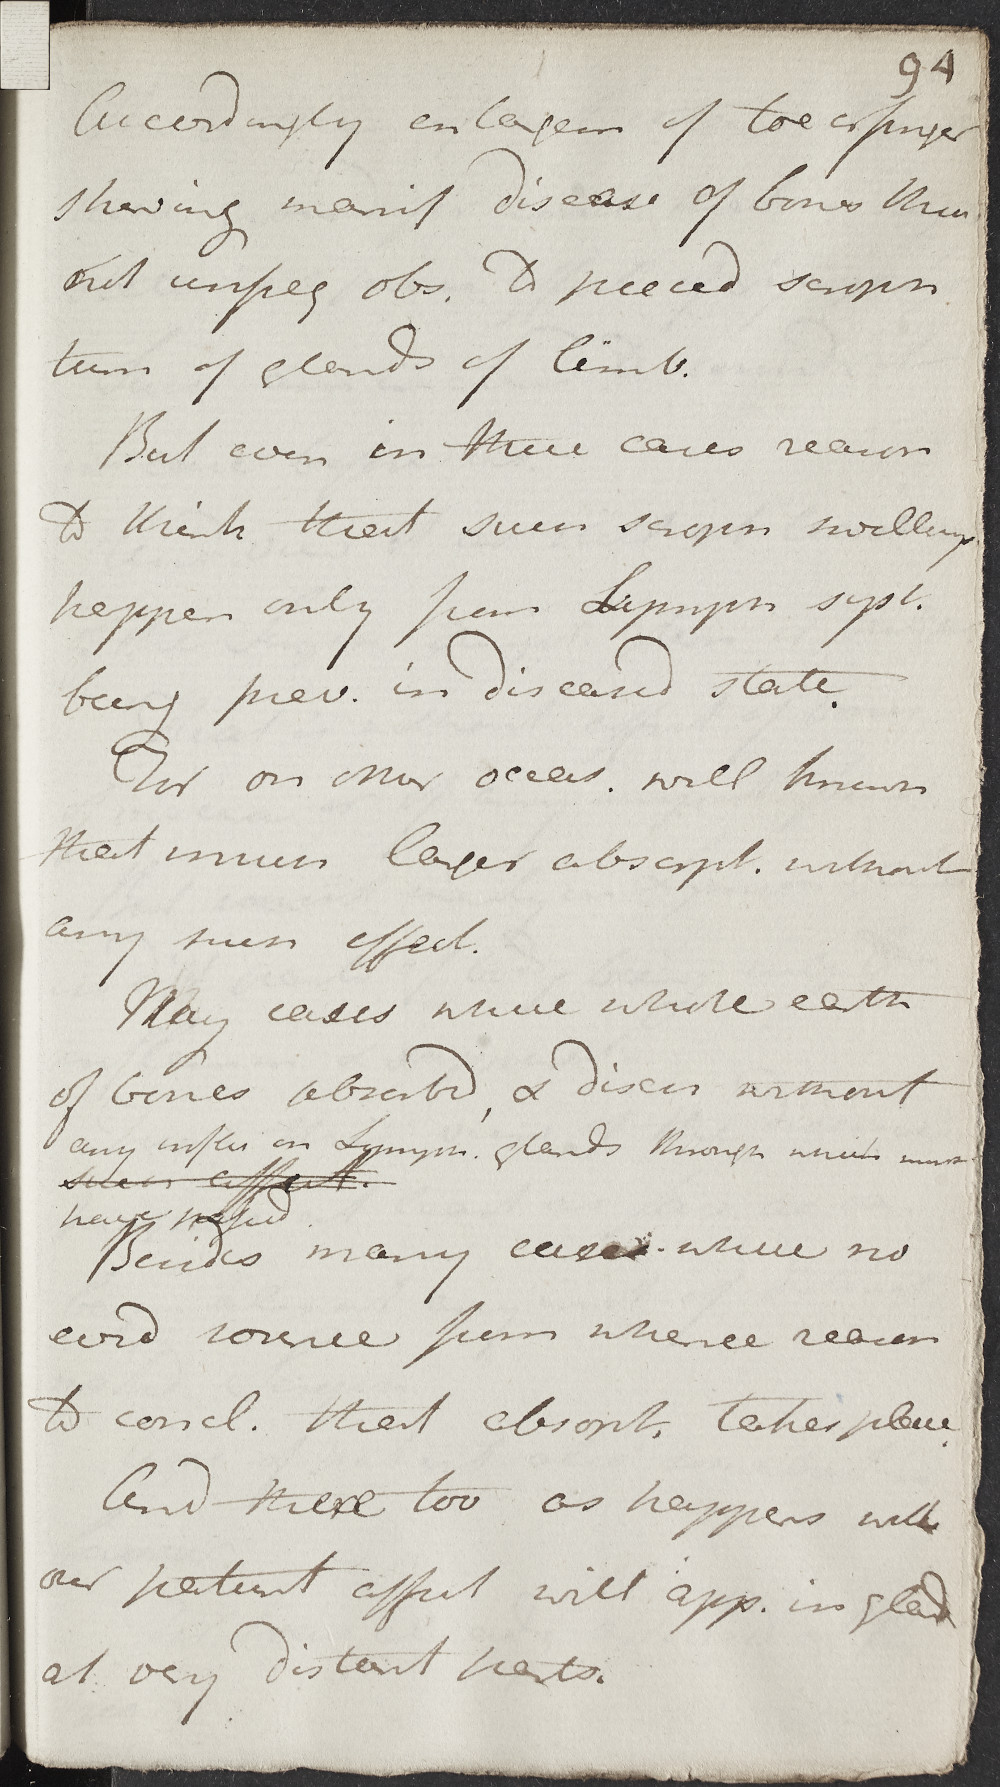 94
Accordingly enlargem of toe or finger
shewing manif disease of bones thus
not unfreq obs. to preced scroph
tum of glands of limb.
But even in these cases reason
to think that such scroph swellings
happen only from Lymph syst.
being prev. in diseased state.
For on other occas. well known
that much larger absorpt. without
any such effect.
May cases where whole earth
of bones absorbd, & disch without
any influ on Lymph. glands through which must
such effect.
have passed
Besides many cases where no
evid source from whence reason
to concl. that absorpt. takes place.
And there too as happens with
our patient effect will app. in gland
at very distant parts.